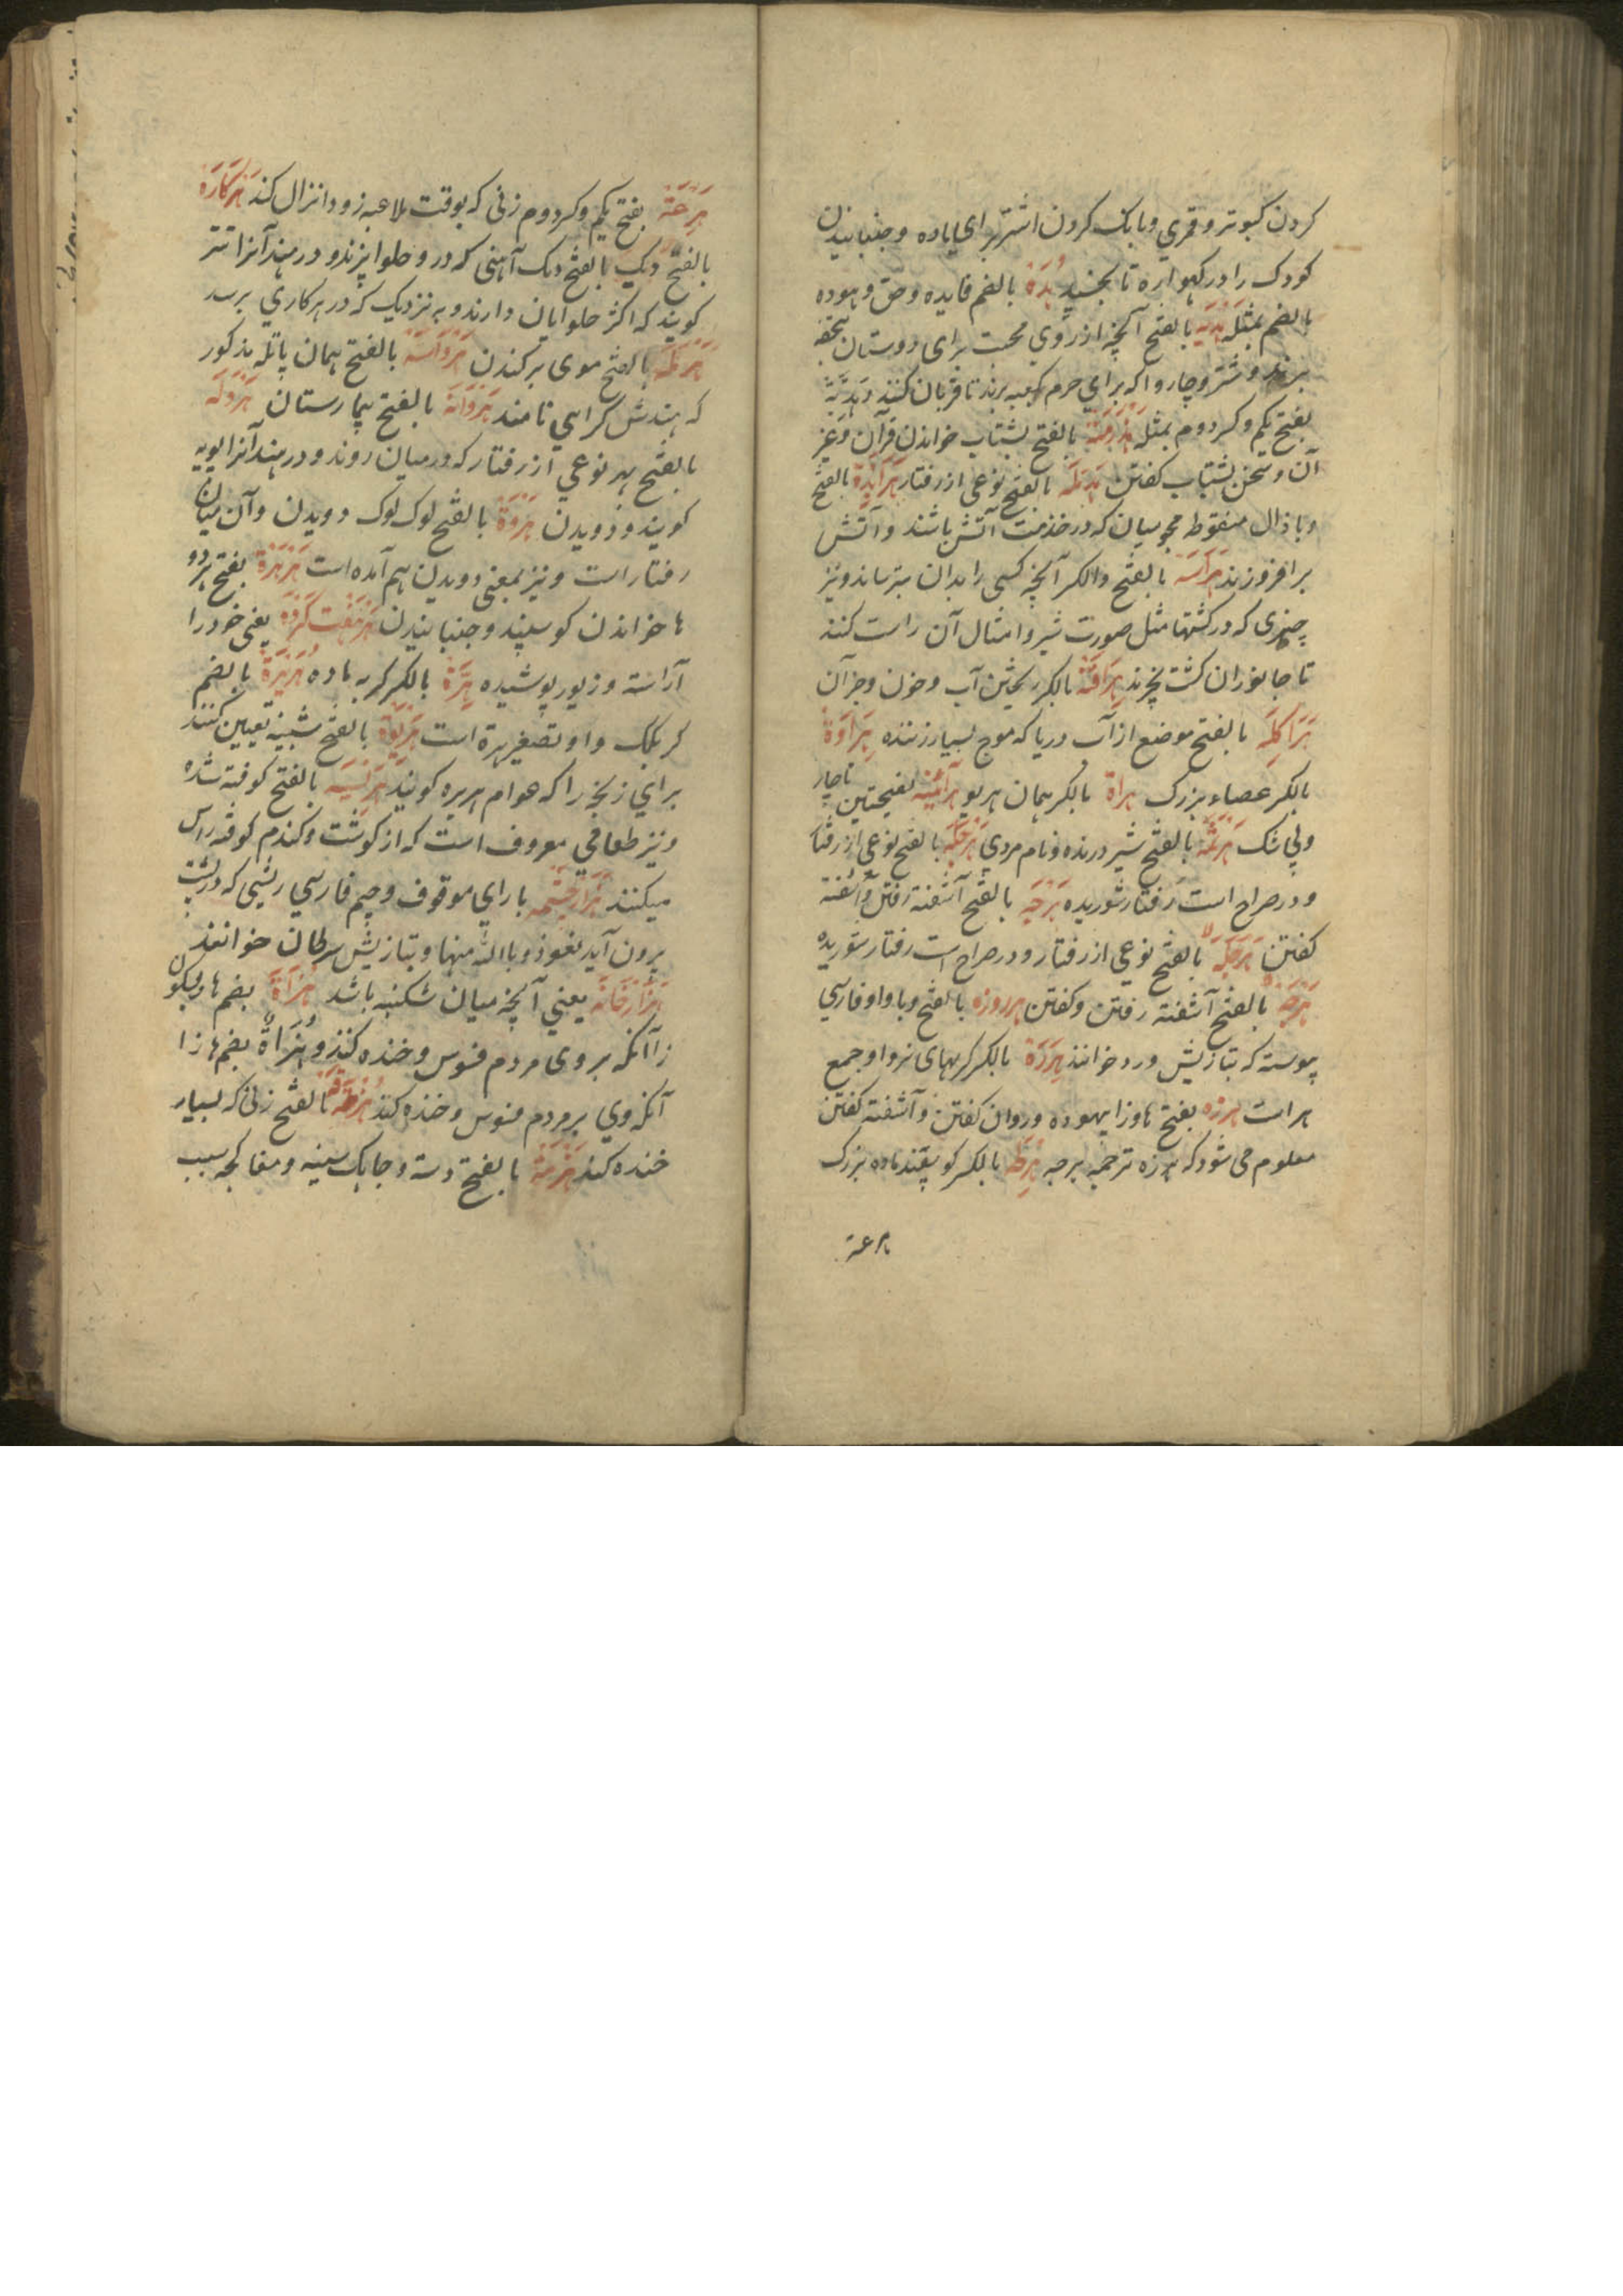 کردن کبوتر و قمری و بانک کردن اشتر برای یاده و جنبانیدن
کودک را در کهواره تا بخسپد هُدَة بالضم فایده و حق و هوده
بالضم بمثله هَدْیَه بالفتح آنچه از روی محبت برای دوستان تحفه
برند و شتر و چاروا که برای حرم کعبه برند تا قربان کنند و هَدِیَّة
بفتح یکم و کسر دوم بمثله هَذْرَمَة بالفتح بشتاب خواندن قرآن و غیر
آن و سخن بشتاب کفتن بالفتح نوعی از رفتار هَرَابِذَة بالفتح
و با ذال منقوطه مجوسیان که در خدمت آتش باشند و آتش
برافروزند هَرَاسَه بالفتح والکسر آنچه کسی را بدان بترسانند و نیز
چیزی که در کشتها مثل صورت شیر و امثال آن راست کنند
تا جانوران کشت نخرند هِرَاقَة بالکسر ریختن آب و خون و جز آن
هَرَاکِلَه بالفتح موضع از آب دریا که موج بسیار زننده هِرَاوَة
بالکسر عصاء بزرک هراة بالکسر همان هریو هرآئینه بفتحتین ناچار
و بی شک هَرْثَمَة بالفتح شیر درنده و نام مردی هَرْجَلَه بالفتح نوعی از رفتار
و در صراح است رفتار شوریده هَرْجَه بالفتح آشفته رفتن و آشفته
کفتن هَرْجَلَه بالفتح نوعی از رفتار و در صراح است رفتار شوریده
هرجه بالفتح آشفته رفتن و کفتن هرروزه بالفتح و با واو فارسی
پیوسته که بتازیش ورد خوانند هِرَرَة بالکسر کربهای نر و او جمع
هر است هرزه بفتح ها و زا بیهوده و روان کفتن و آشفته کفتن
معلوم می شود که هرزه ترجمه هرجه هِرْطَه بالکسر کوسپند ماده بزرک
هرعة
هَرِعَة بفتح یکم و کسر دوم زنی که بوقت ملاعبه زود انزال کند هَرْکَارَه
بالفتح دیک بالفتح دیک آهنی که در و حلوا پزند و در هند آنرا
کویند که اکثر حلوایان دارند و به نزدیک که در هر کاری برسد
هَرْمَطَه بالفتح موی برکندن هَرْوَاسَه بالفتح همان پاتله مذکور
که هندش کراهی نامند هَرْوَانَه بالفتح بیمارستان هَرْوَلَه
بالفتح هد نوعی از رفتار که در میان روند و در هند آنرا پویه
کویند و دویدن هَرْوَة بالفتح لوک لوک دویدن و آن میان
رفتار است و نیز بمعنی دویدن هم آمده است هَرْهَرَة بفتح هر دو
ها خواندن کوسپند و جنبانیدن هرهفت کرده یعنی خود را
آراسته و زیور پوشیده هِرَّة بالکسر کربه ماده هُرَیْرَة بالضم
کربک و او تصغیر هرة است بالفتح شبینه تعیین کنند
برای زنخ را که هوام هریره کویند هَرِیسَه بالفتح کوفته شده
و نیز طعامی معروف است که از کوشت و کندم کوفته راس
میکنند هَزَارچشمه با رای موقوف و جیم فارسی ریشی که در پشت
برون آید نعوذ و بالله منها و بتازیش سرطان خوانند
هَزَارخَانَه یعنی آنچه میان شکنبه باشد هُزْأَة بضم ها و سکون
زا آنکه بروی مردم فسوس و خنده کنند و هُزَأَة بضم ها زا
آنکه وی بر مردم فسوس و خنده کند بالفتح زنی که بسیار
خنده کند هَزْمَة بالفتح دسته و جابک سینه و مغاکچه سیب